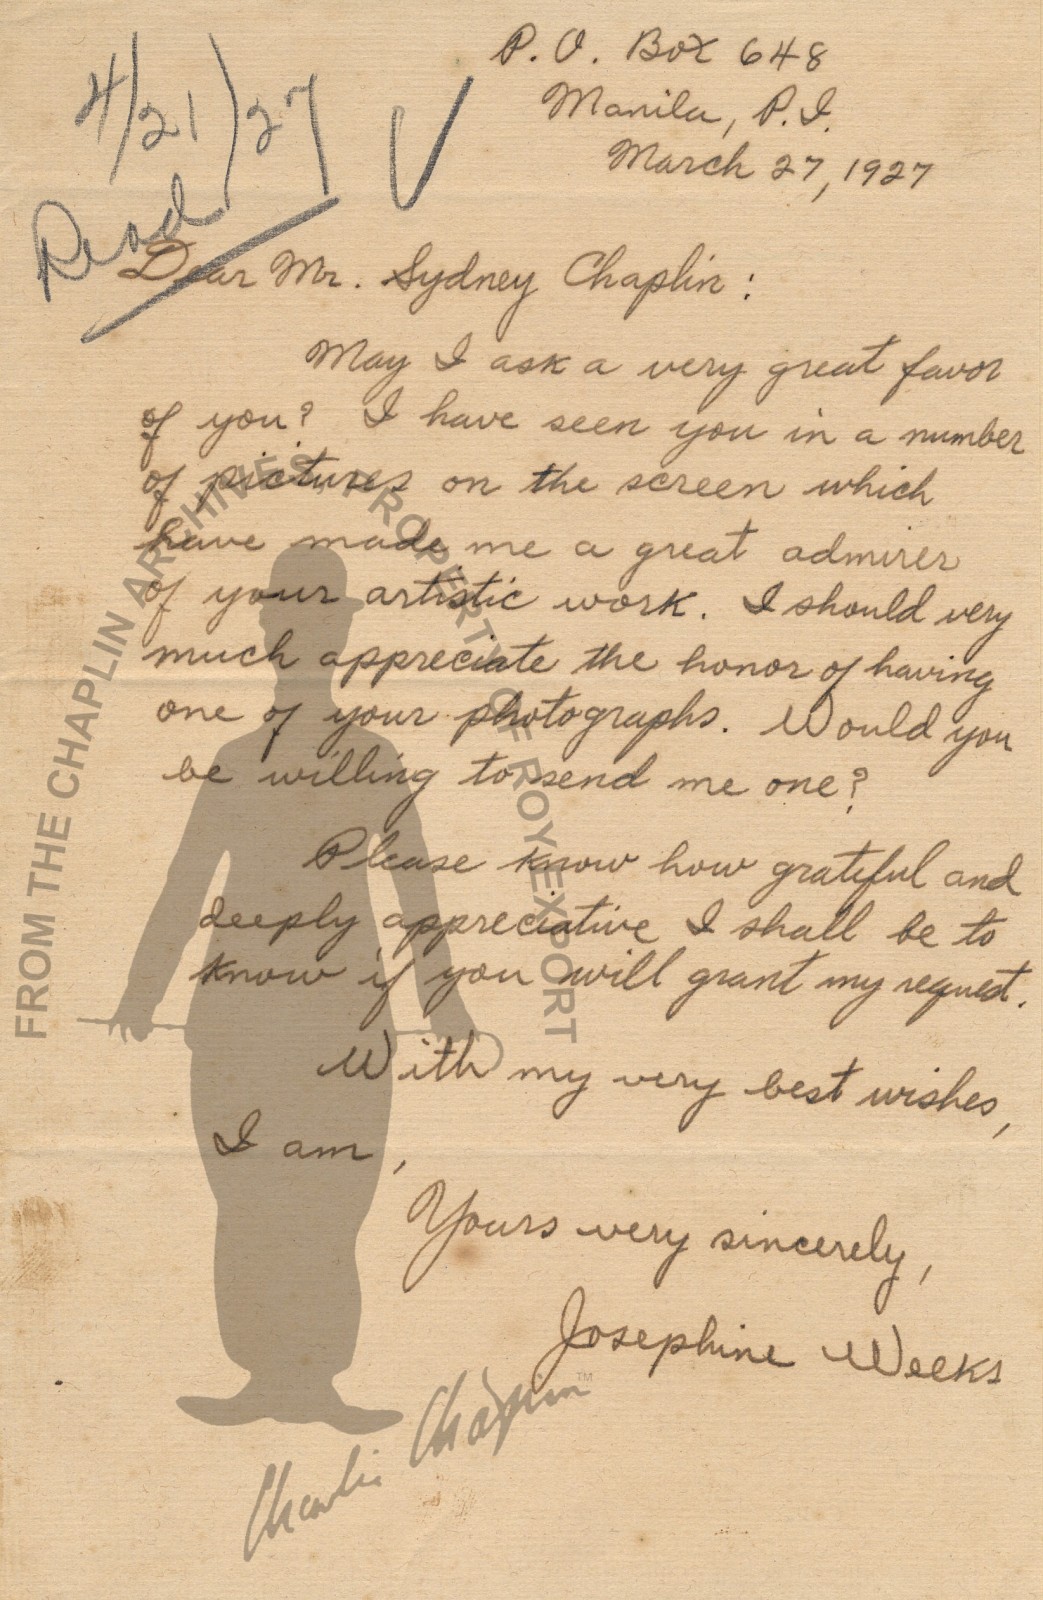 P. O. Box 648
Manila, P. I.
March 27, 1927
4/21/27
Read
Dear Mr. Sydney Chaplin:
May I ask a very great favor
of you? I have seen you in a number
of pictures on the screen which
have made me a great admirer
of your artistic work. I should very
much appreciate the honor of having
one of your photographs. Would you
be willing to send me one?
Please know how grateful and
deeply appreciative I shall be to
know if you will grant my request.
With my very best wishes,
I am,
Yours very sincerely,
Josephine Weeks
FROM THE CHAPLIN ARCHIVES, PROPERTY OF ROY EXPORT
Charlie Chaplin™